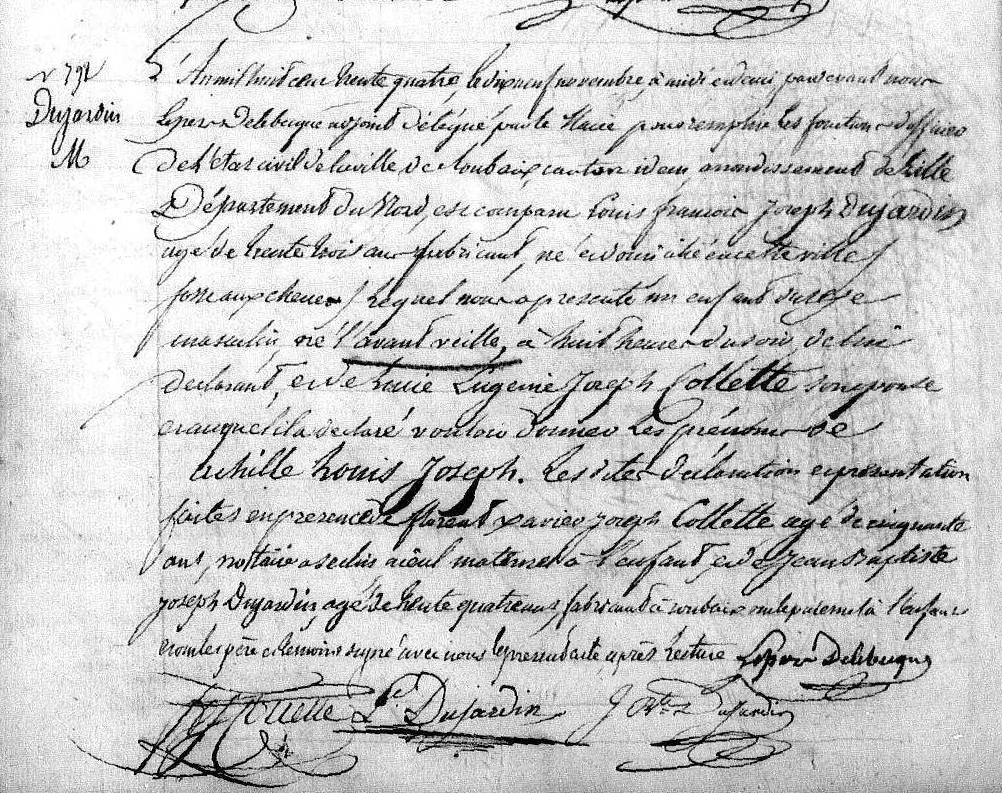 n° 791
Dujardin
M
L'An mil huit cent trente quatre, le dix neuf novembre, à midi et demi pardevant nous
Lepers Delebecque adjoint délégué par le Maire pour remplir les fonctions d'officier
de l'état civil de la ville de Roubaix, canton idem arrondissement de Lille
Département du Nord, est comparu Louis françois Joseph Dujardin
agé de trente trois ans fabricant, né et domicilié en cette ville (
fosse aux chenes) Lequel nous a presenté un enfant du sexe
masculin, né l'avant veille, à huit heures du soir de lui
déclarant, et de Marie Eugenie Joseph Collette son epouse
et auquel il a declaré vouloir donner Les prénoms de
Achille Louis Joseph. Les dites déclaration et présentation
faites en presence de florent xavier joseph Collette agé de cinquante
ans, notaire a seclin aïeul maternel à l'enfant, et de Jean Baptiste
joseph Dujardin, agé de trente quatre ans, fabricant à roubaix oncle paternel à l'enfant
et ont les père et témoins signé avec nous le présent acte, après lecture Lepers Delebecque
Collette Ls Dujardin J Bte Dujardin